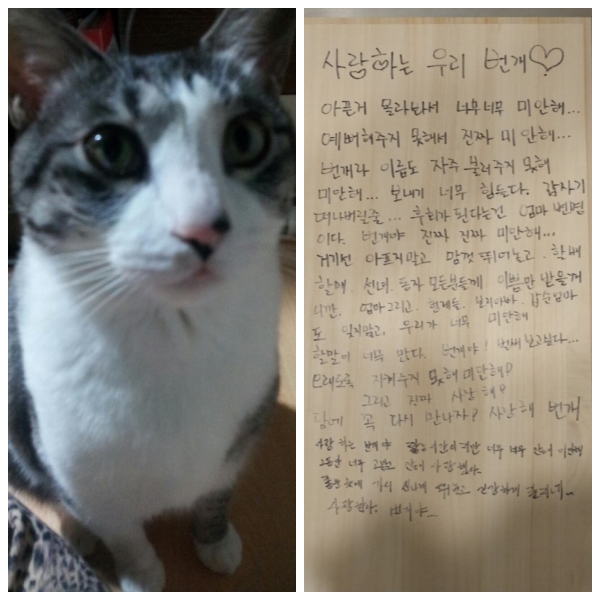 사랑하는 우리 번개♡
아픈거 몰라봐서 너무너무 미안해...
예뻐해주지 못해서 진짜 미안해...
번개라 이름도 자주 불러주지 못해
미안해... 보내기 너무 힘들다. 갑자기
떠나버릴줄... 후회가 된다는건 엄마 변명
이다. 번개야 진짜 진짜 미안해...
거기선 아프지말고 맘껏 뛰어놀고. 학배
할매. 선녀. 동자 모든분들께 이쁨만 받을꺼
니깐. 엄마그리고. 형제들. 보리아빠. 삼순엄마
도 잊지말고, 우리가 너무 미안해
할말이 너무 많다. 번개야! 벌써 보고싶다...
오래도록 지켜주지 못해 미안해?
그리고 진짜 사랑해?
담에 꼭 다시 만나자? 사랑해 번개
사랑하는 번개야 짧은시간이지만 너무 너무 미안해
그동안 너무
좋은곳에 가서 신나게 뛰놀고 건강하게
사랑한다. 번개야...